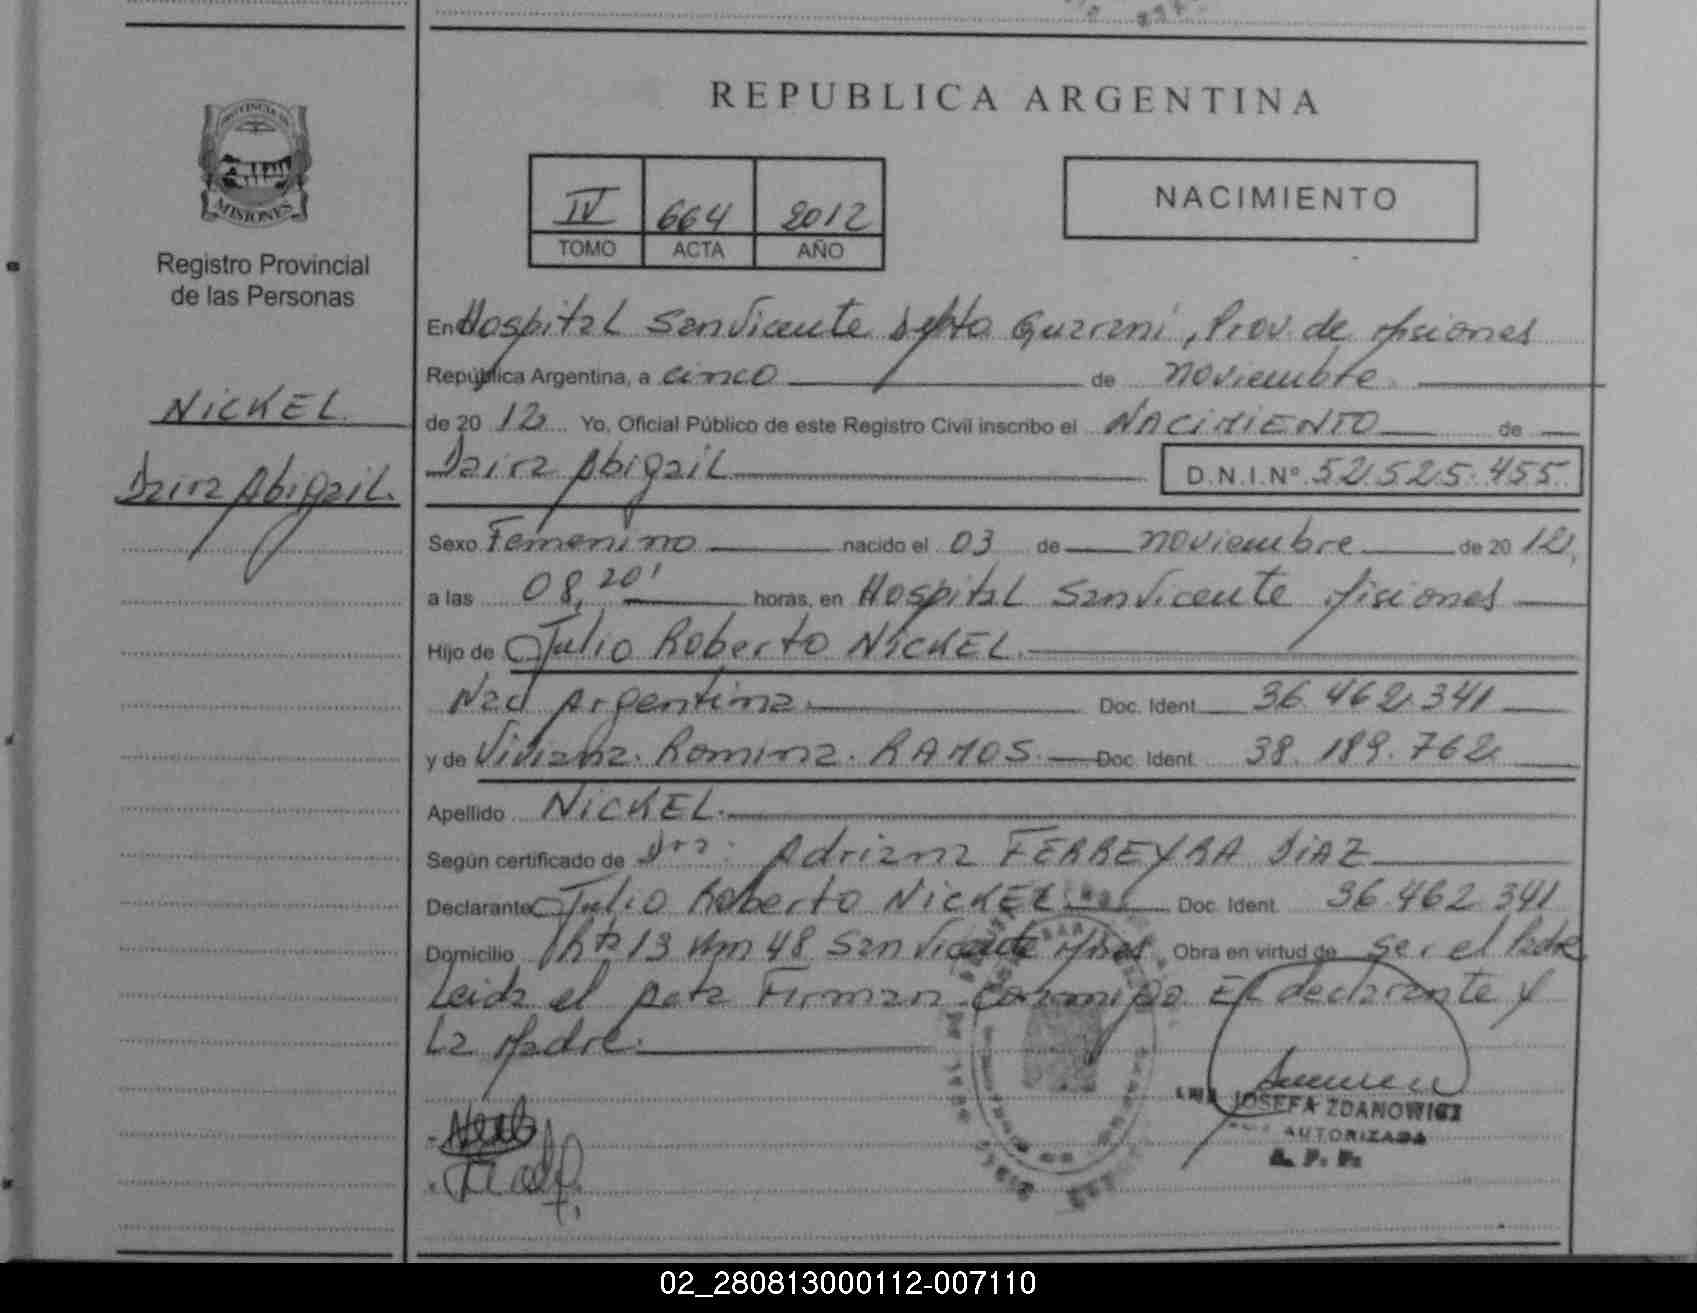 REPUBLICA ARGENTINA
PROVINCIA DE
MISIONES
Registro Provincial
de las Personas
IV 664 2012
TOMO ACTA AÑO
NACIMIENTO
NICKEL
Daira Abigail.
En Hospital San Vicente Depto Guarani, Prov. de Misiones
República Argentina, a cinco de noviembre
de 20 12 Yo, Oficial Público de este Registro Civil inscribo el NACIMIENTO de
Daira Abigail D.N.I.Nº 52.525.455
Sexo Femenino nacido el 03 de noviembre de 20 12,
a las 08,20' horas, en Hospital San Vicente Misiones
Hijo de Julio Roberto NICKEL.
Nac Argentina. Doc. Ident. 36.462.341
y de Viviana. Romina. RAMOS. Doc. Ident. 38.189.762
Apellido NICKEL.
Según certificado de Dra. Adriana FERREYRA DIAZ
Declarante Julio Roberto NICKEL Doc. Ident. 36.462.341
Domicilio 13 Km 48 San Vicente Mnes. Obra en virtud de ser el Padre
Leida el Acta Firman conmigo El declarante y
La Madre.
JOSEFA ZDANOWICZ
AUTORIZADA
R. P. P.
02_280813000112-007110